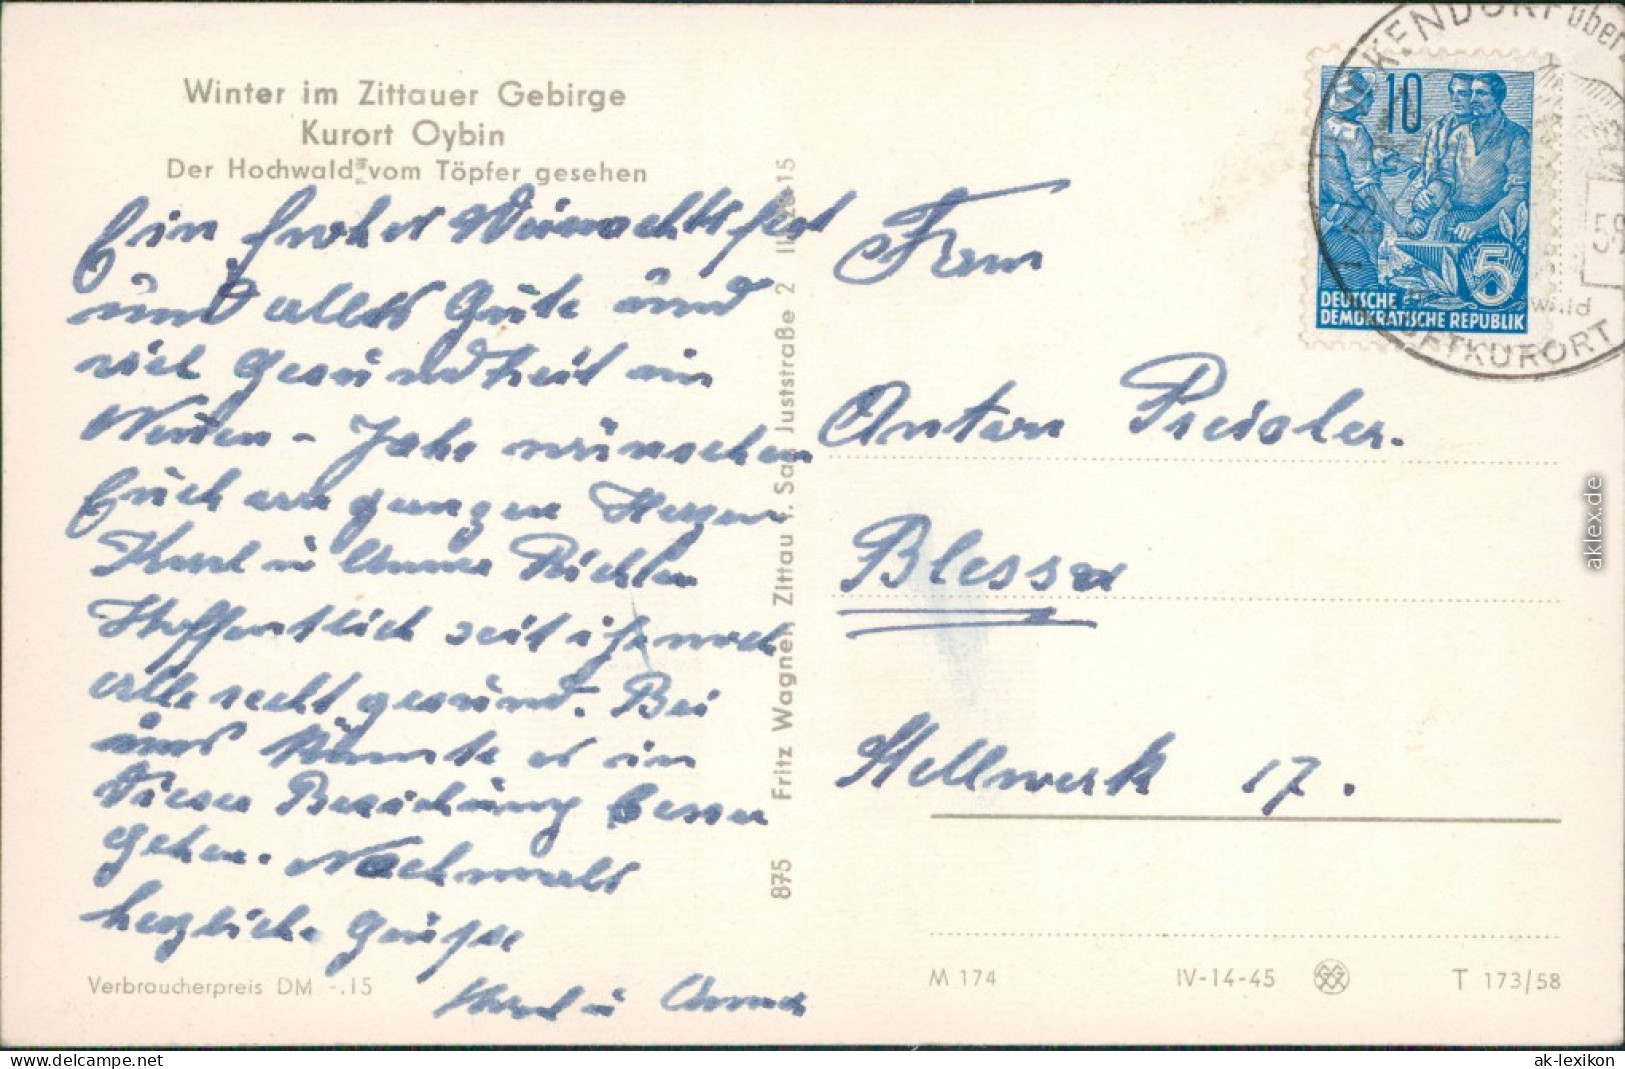 Winter im Zittauer Gebirge
Kurort Oybin
Der Hochwald vom Töpfer gesehen
Ein frohes Weinachtsfest
und alles Gute und
viel Gesundheit im
Neuen - Jahr wünschen
Euch von ganzen Herzen
Karl u Anna Richter
Hoffentlich seit ihr noch
alle recht gesund. Bei
uns könnte es in
dieser Beziehung besser
gehen. Nochmals
herzliche Grüße
Karl u Anna
Verbraucherpreis DM -.15
875 Fritz Wagner, Zittau i. Sa., Juststraße 2 15
Frau
Anton Preisler.
Blessa
Stellwerk 17.
M 174 IV-14-45 T 173/58
10
5
DEUTSCHE
DEMOKRATISCHE REPUBLIK
über
LUFTKURORT
aklex.de
www.delcampe.net
ak-lexikon